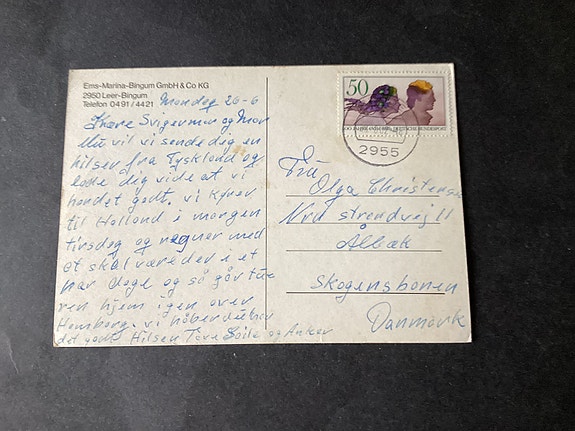 Ems-Marina-Bingum GmbH & Co KG
2950 Leer-Bingum
Telefon 04 91 / 44 21
Mandag 20-6
Kære Svigermor og Mor
Nu vil vi sende dig en
hilsen fra Tyskland og
lade dig vide at vi
har det godt. vi kører
til Holland i morgen
tirsdag og regner med
at skal være der i et
par dage og så går tu
ren hjem igen over
Hamborg. vi håber du har
det godt Hilsen Tove Soile og Anker
50
DEUTSCHE BUNDESPOST
2955
Fru
Olga Christense
Nrd strandvej 11
Ålbæk
Skagensbanen
Danmark